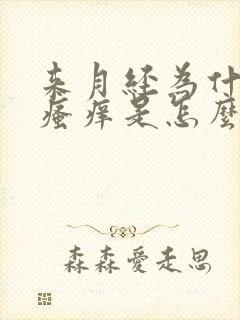 来月经为什
瘙痒是怎麼
森森愛走思